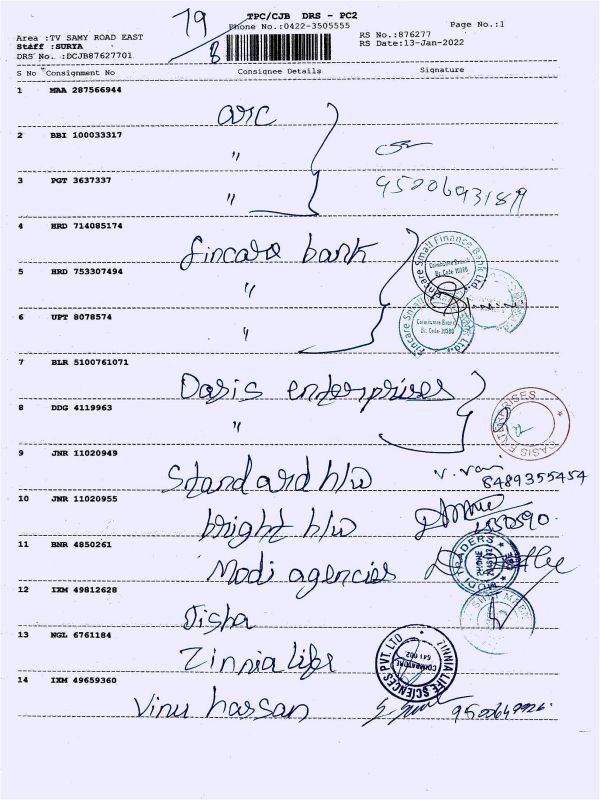 79
TPC/CJB DRS - PC2
Phone No.:0422-3505555
Page No.:1
Area :TV SAMY ROAD EAST
Staff :SURYA
DRS No. :DCJB87627701
8
RS No.:876277
RS Date:13-Jan-2022
S No Consignment No Consignee Details Signature
1 MAA 287566944
arc
2 BBI 100033317
"
3 PGT 3637337
"
9500693189
4 HRD 714085174
fincare bank
Fincare Small Finance Bank Ltd
Coimbatore Branch
Br. Code-30380
5 HRD 753307494
"
6 UPT 8078574
"
Fincare Small
Coimbatore Branch
Br. Code-30380
7 BLR 5100761071
Oasis enterprises
8 DDG 4119963
"
OASIS ENTERPRISES
9 JNR 11020949
Standard h/w
V. Vani
8489355454
10 JNR 11020955
bright h/w
11 BNR 4850261
Modi agencies
MODI TRADERS
PHONE
12 IXM 49812628
Jisha
13 NGL 6761184
Zinnia life
ZINNIA LIFE SCIENCES PVT. LTD
COIMBATORE
641 002
14 IXM 49659360
Vinu hassan